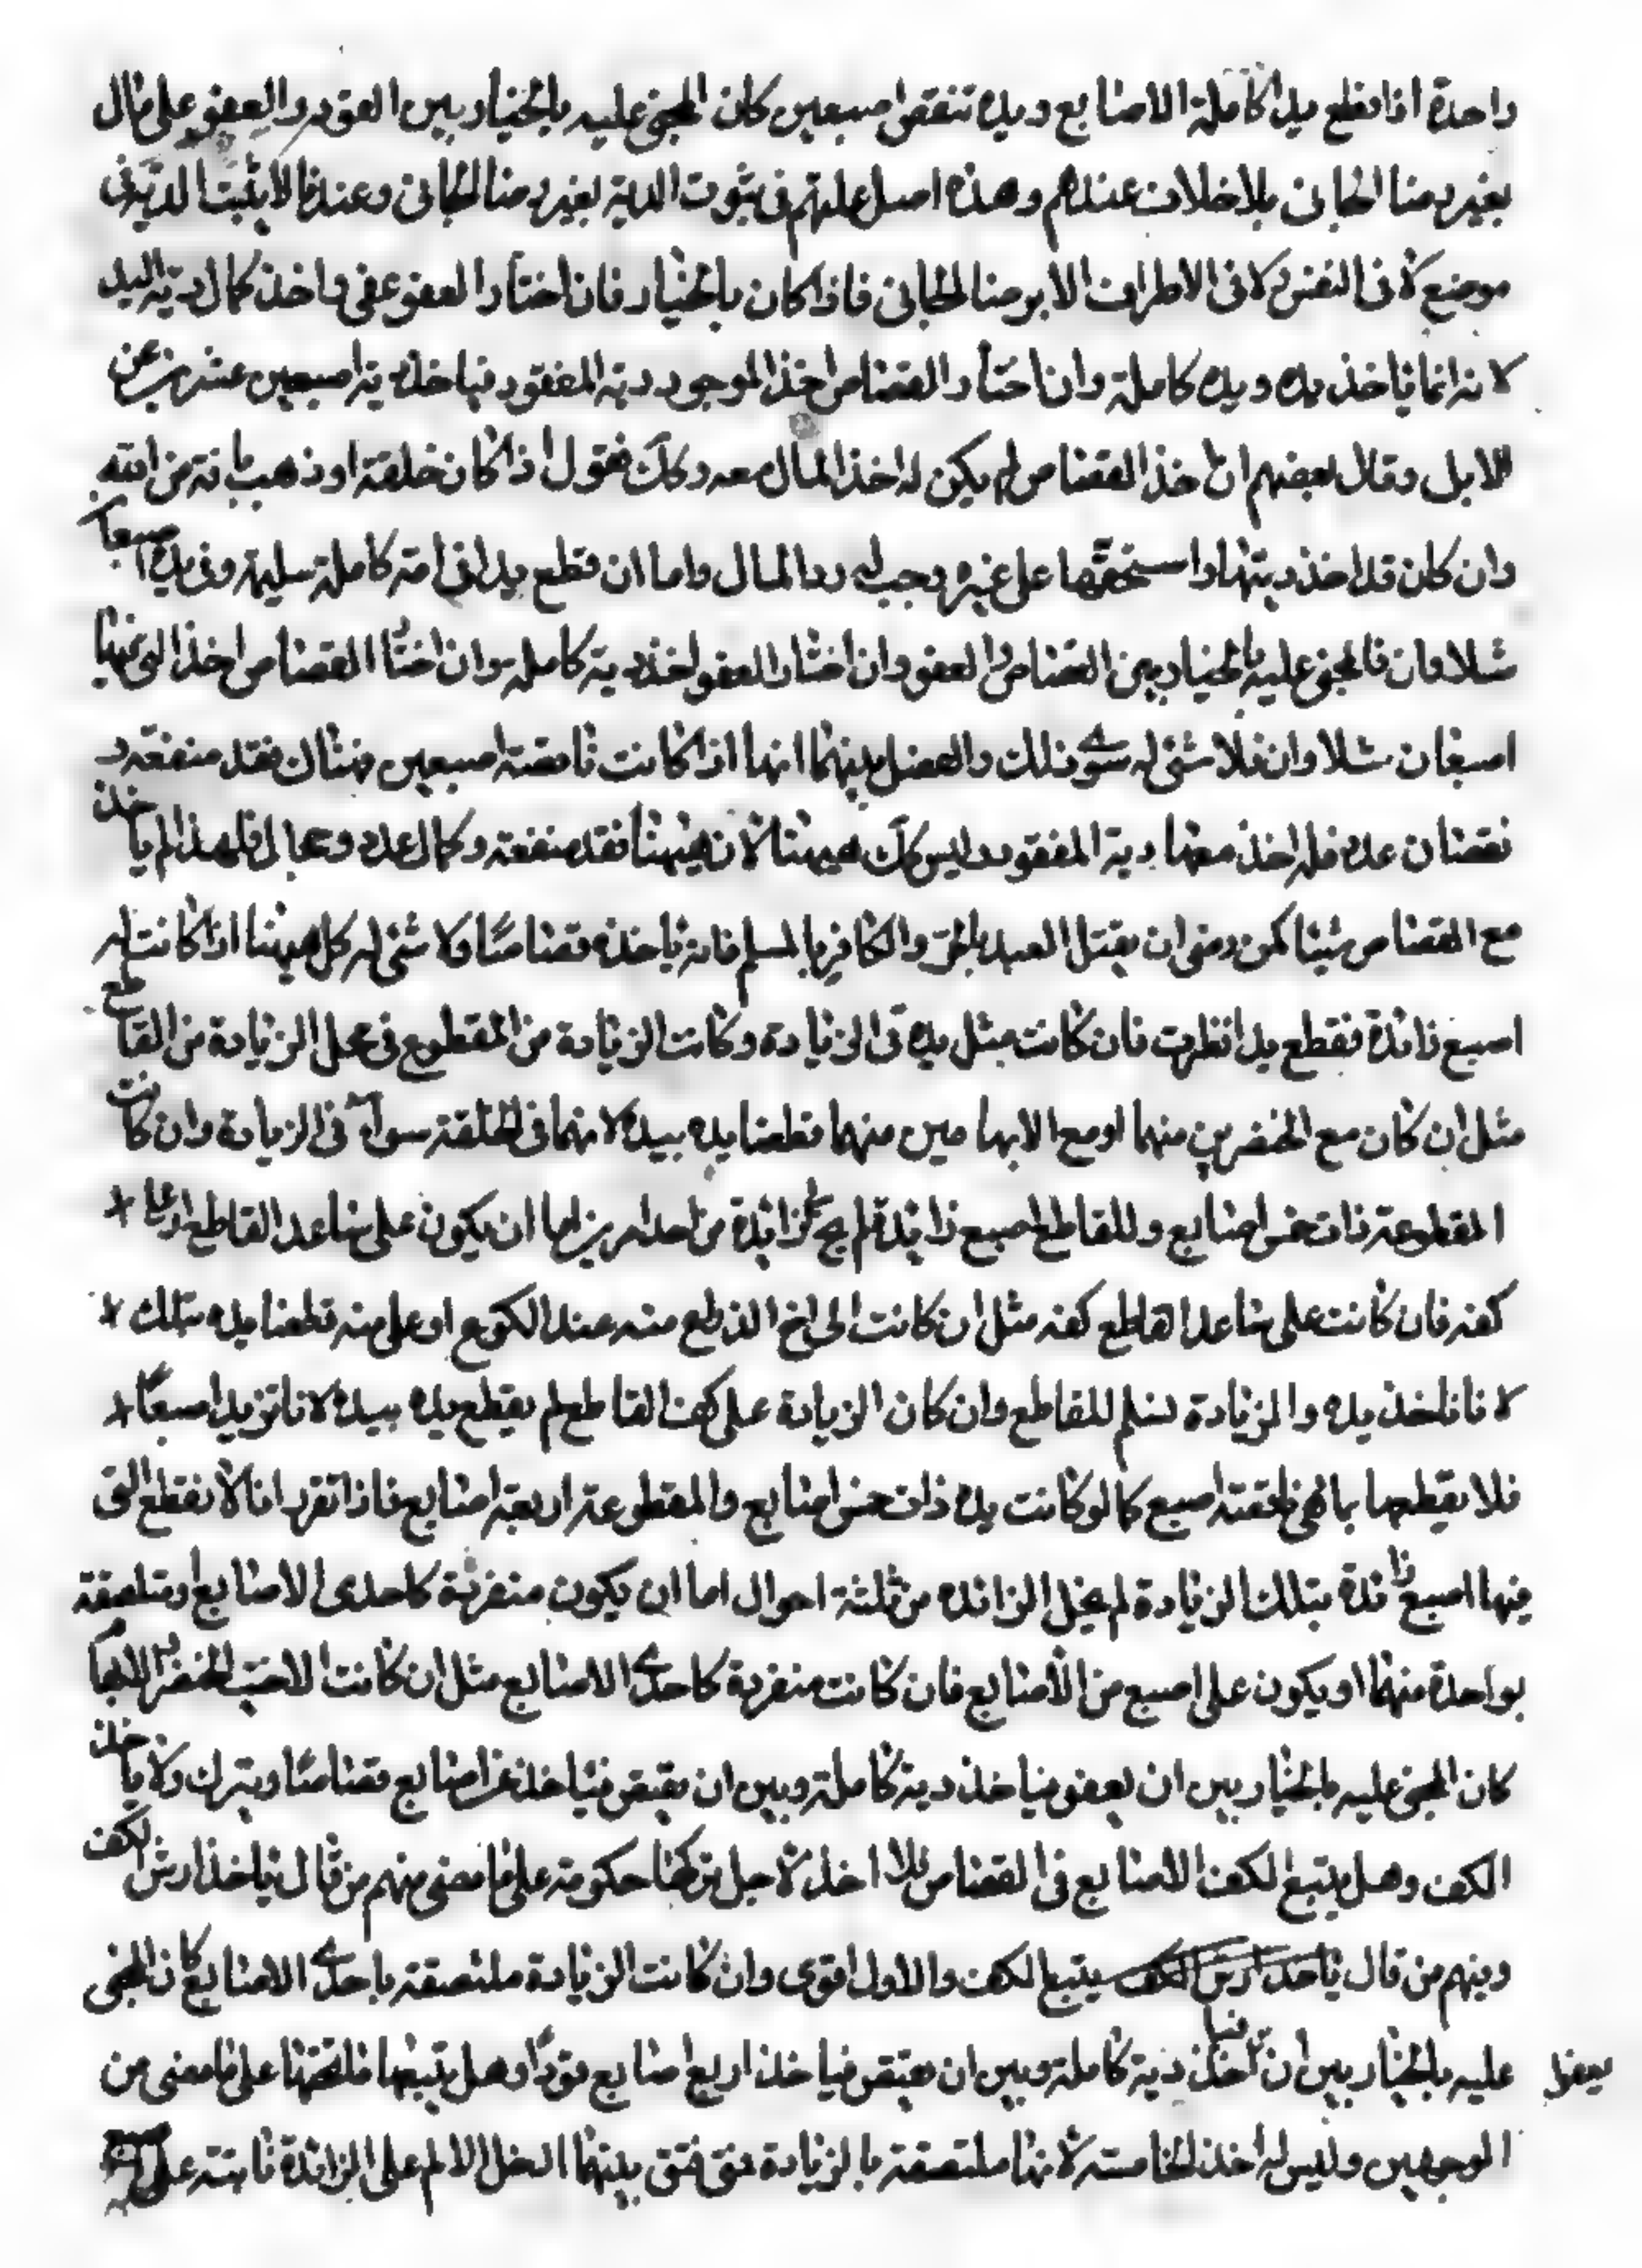 واحدة اذا قطع يدا كاملة الاصابع ويده تنقص اصبعين كان المجنى عليه بالخيار بين القود والعفو على مال
بغير رضا الجانى بلا خلاف عندهم وهذه اصل عليهم فى ثبوت الدية بغير رضا الجانى وعندنا لا يثبت الدية فى
موضع لا فى النفس ولا فى الاطراف الا برضا الجانى فاذا كان بالخيار فان اختار العفو عفى واخذ كمال دية اليد
لانه انما ياخذ يده ويده كاملة وان اختار القصاص اخذ الموجود ودية المفقود فياخذ دية اصبعين عشرين من
الابل وقال بعضهم ان اخذ القصاص لم يكن له اخذ المال معه وكك نقول اذا كان خلقة او ذهب بافة من الله
وان كان قد اخذ ديتها او استحقها على غيره وجب له رد المال واما ان قطع يدا قامة كاملة سليمة وفى يده اصبعان
شلاوان فالمجنى عليه بالخيار بين القصاص والعفو وان اختار العفو اخذ دية كاملة وان اختار القصاص اخذ التى فيها
اصبعان شلاوان فلا شئ له سوى ذلك والفصل بينهما انها اذا كانت ناقصة اصبعين فهناك فقد منفعة و
نقصان عدد فله اخذ معها دية المفقود وليس كك هيهنا لان هيهنا فقد منفعة وكمال عدد وجمال فلهذا لم ياخذ
مع القصاص شيئا كمن رضى ان يقتل العبد بالحر والكافر بالمسلم فانه ياخذه قصاصا ولا شئ له كك هيهنا اذا كانت له
اصبع زائدة فقطع يدا نظرت فان كانت مثل يده فى الزيادة وكانت الزيادة من المقطوع فى محل الزيادة من القاطع
مثل ان كان مع الخنصرين منهما او مع الابهامين منهما قطعنا يده بيده لانهما فى الخلقة سواء فى الزيادة وان كانت
المقطوعة ذات خمس اصابع وللقاطع اصبع زايدة لم يخل الزايدة من احد امرين اما ان يكون على ساعد القاطع او على
كفه فان كانت على ساعد القاطع كفه مثل ان كانت الى اخ الذى قطع منه عند الكوع او على منه قطعنا يده بتلك
لانا ناخذ يده والزيادة تسلم للقاطع وان كان الزيادة على كف القاطع لم يقطع يده بيده لانا نزيد اصبعا
فلا يقطعها بما هى ناقصة اصبع كما لو كانت يده ذات خمس اصابع والمقطوعة اربعة اصابع فاذا تقرر انا لا نقطع التى
فيها اصبع زائدة بتلك الزيادة لم يخل الزائدة من ثلثة احوال اما ان يكون منفردة كاحدى الاصابع او متلصقة
بواحدة منهما او يكون على اصبع من الاصابع فان كانت منفردة كاحدى الاصابع مثل ان كانت الاجنب الخنصر او الابهام
كان المجنى عليه بالخيار بين ان يعفو فياخذ دية كاملة وبين ان يقتص فياخذ خمس اصابع قصاصا ويترك ولا ياخذ
الكف وهل يتبع الكف الاصابع فى القصاص بلا اخذ لاجل تركها حكومة على ما مضى منهم من قال ياخذ ارش الكف
ومنهم من قال يتبع الكف والاول اقوى وان كانت الزيادة ملتصقة باحدى الاصابع كان المجنى
عليه بالخيار بين ان يعفو فياخذ دية كاملة وبين ان يقتص فياخذ اربع اصابع قودا وهل يتبعها ما تحتها على ما مضى من
الوجهين وليس له اخذ الخامسة لانها ملتصقة بالزيادة متى فتق بينهما ادخل الالم على الزائدة نابتة على